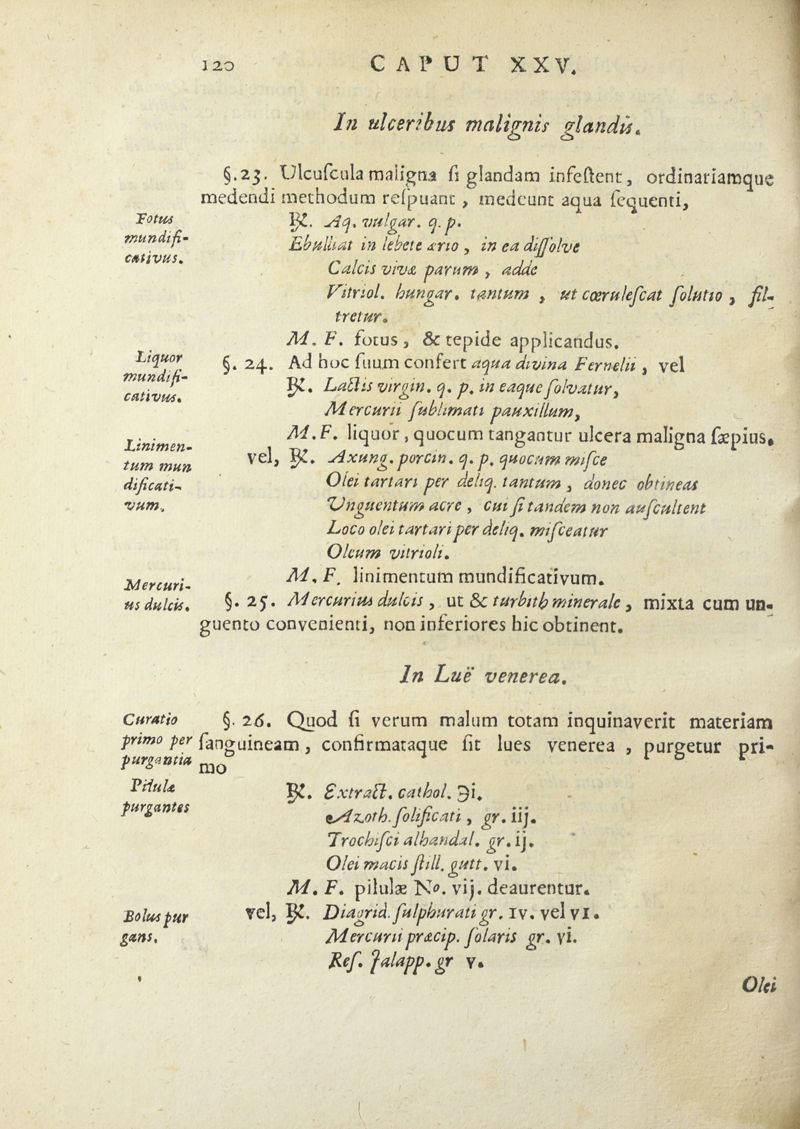 120 CAPUT XXV.
In ulceribus malignis glandis.
§.23. Ulcuſcula maligna ſi glandam infeſtent, ordinariamque
medendi methodum reſpuant, medeunt aqua ſequenti,
Fotus
mundifi-
cativus.
℞. Aq. vulgar. q. p.
Ebulliat in lebete ærio, in ea diſſolve
Calcis vivæ parum, adde
Vitriol. hungar. tantum, ut cœruleſcat ſolutio, fil-
tretur.
M. F. fotus, & tepide applicandus.
Liquor
mundifi-
cativus.
§. 24. Ad hoc ſuum confert aqua divina Fernelii, vel
℞. Lactis virgin. q. p. in eaque ſolvatur,
Mercurii ſublimati pauxillum,
M.F. liquor, quocum tangantur ulcera maligna ſæpius.
Linimen-
tum mun
dificati-
vum.
vel, ℞. Axung. porcin. q. p. quocum miſce
Olei tartari per deliq. tantum, donec obtineas
Unguentum acre, cui ſi tandem non auſcultent
Loco olei tartari per deliq. miſceatur
Oleum vitrioli.
M. F. linimentum mundificativum.
Mercuri-
us dulcis.
§. 25. Mercurius dulcis, ut & turbith minerale, mixta cum un-
guento convenienti, non inferiores hic obtinent.
In Luë venerea.
Curatio
primo per
purgantia
§. 26. Quod ſi verum malum totam inquinaverit materiam
ſanguineam, confirmataque ſit lues venerea, purgetur pri-
mo
Pilulæ
purgantes
℞. Extract. cathol. ℈i.
Azoth. ſolificati, gr. iij.
Trochiſci alhandal. gr. ij.
Olei macis ſtill. gutt. vi.
M. F. pilulæ No. vij. deaurentur.
Bolus pur
gans.
vel, ℞. Diagrid. ſulphurati gr. IV. vel VI.
Mercurii præcip. ſolaris gr. vi.
Reſ. Jalapp. gr v.
Olei